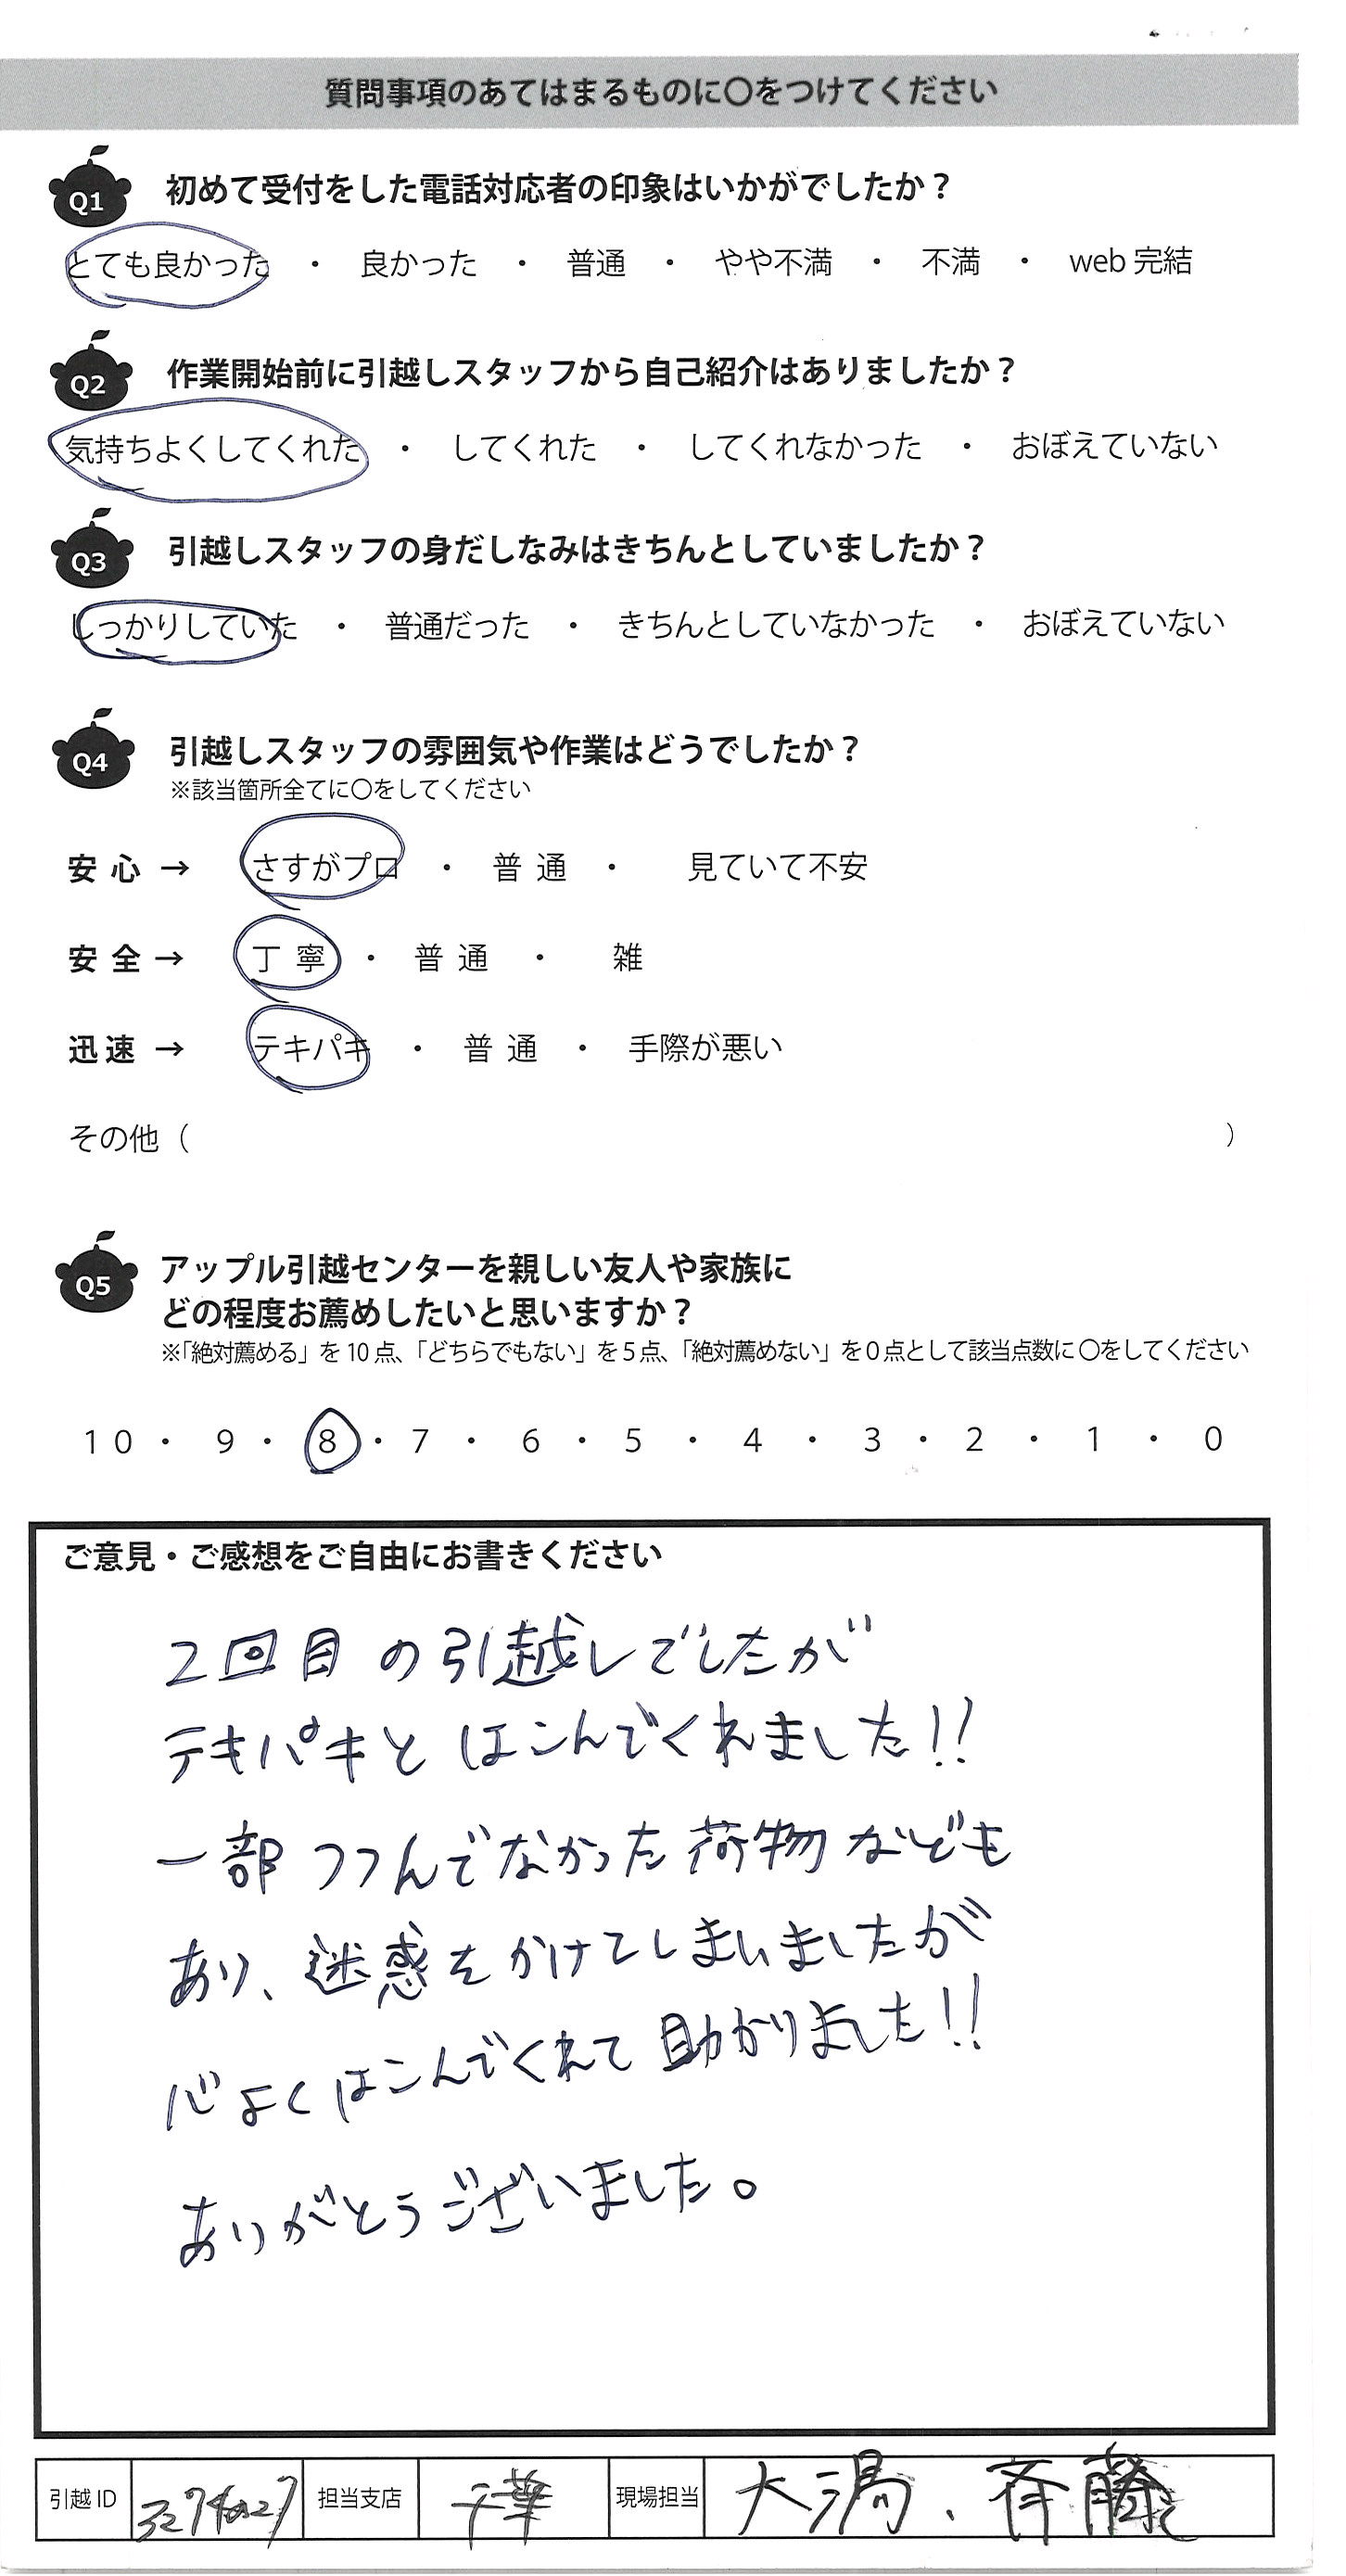 質問事項のあてはまるものに〇をつけてください
Q1 初めて受付をした電話対応者の印象はいかがでしたか？
とても良かった ・ 良かった ・ 普通 ・ やや不満 ・ 不満 ・ web 完結
Q2 作業開始前に引越しスタッフから自己紹介はありましたか？
気持ちよくしてくれた ・ してくれた ・ してくれなかった ・ おぼえていない
Q3 引越しスタッフの身だしなみはきちんとしていましたか？
しっかりしていた ・ 普通だった ・ きちんとしていなかった ・ おぼえていない
Q4 引越しスタッフの雰囲気や作業はどうでしたか？
※該当箇所全てに〇をしてください
安心 → さすがプロ ・ 普通 ・ 見ていて不安
安全 → 丁寧 ・ 普通 ・ 雑
迅速 → テキパキ ・ 普通 ・ 手際が悪い
その他（ ）
Q5 アップル引越センターを親しい友人や家族に
どの程度お薦めしたいと思いますか？
※「絶対薦める」を10点、「どちらでもない」を5点、「絶対薦めない」を0点として該当点数に〇をしてください
10 ・ 9 ・ 8 ・ 7 ・ 6 ・ 5 ・ 4 ・ 3 ・ 2 ・ 1 ・ 0
ご意見・ご感想をご自由にお書きください
2回目の引越しでしたが
テキパキとはこんでくれました!!
一部つつんでなかった荷物なども
あり、迷惑をかけてしまいましたが
心よくはこんでくれて助かりました!!
ありがとうございました。
引越ID 担当支店 千葉 現場担当 大潟、斉藤